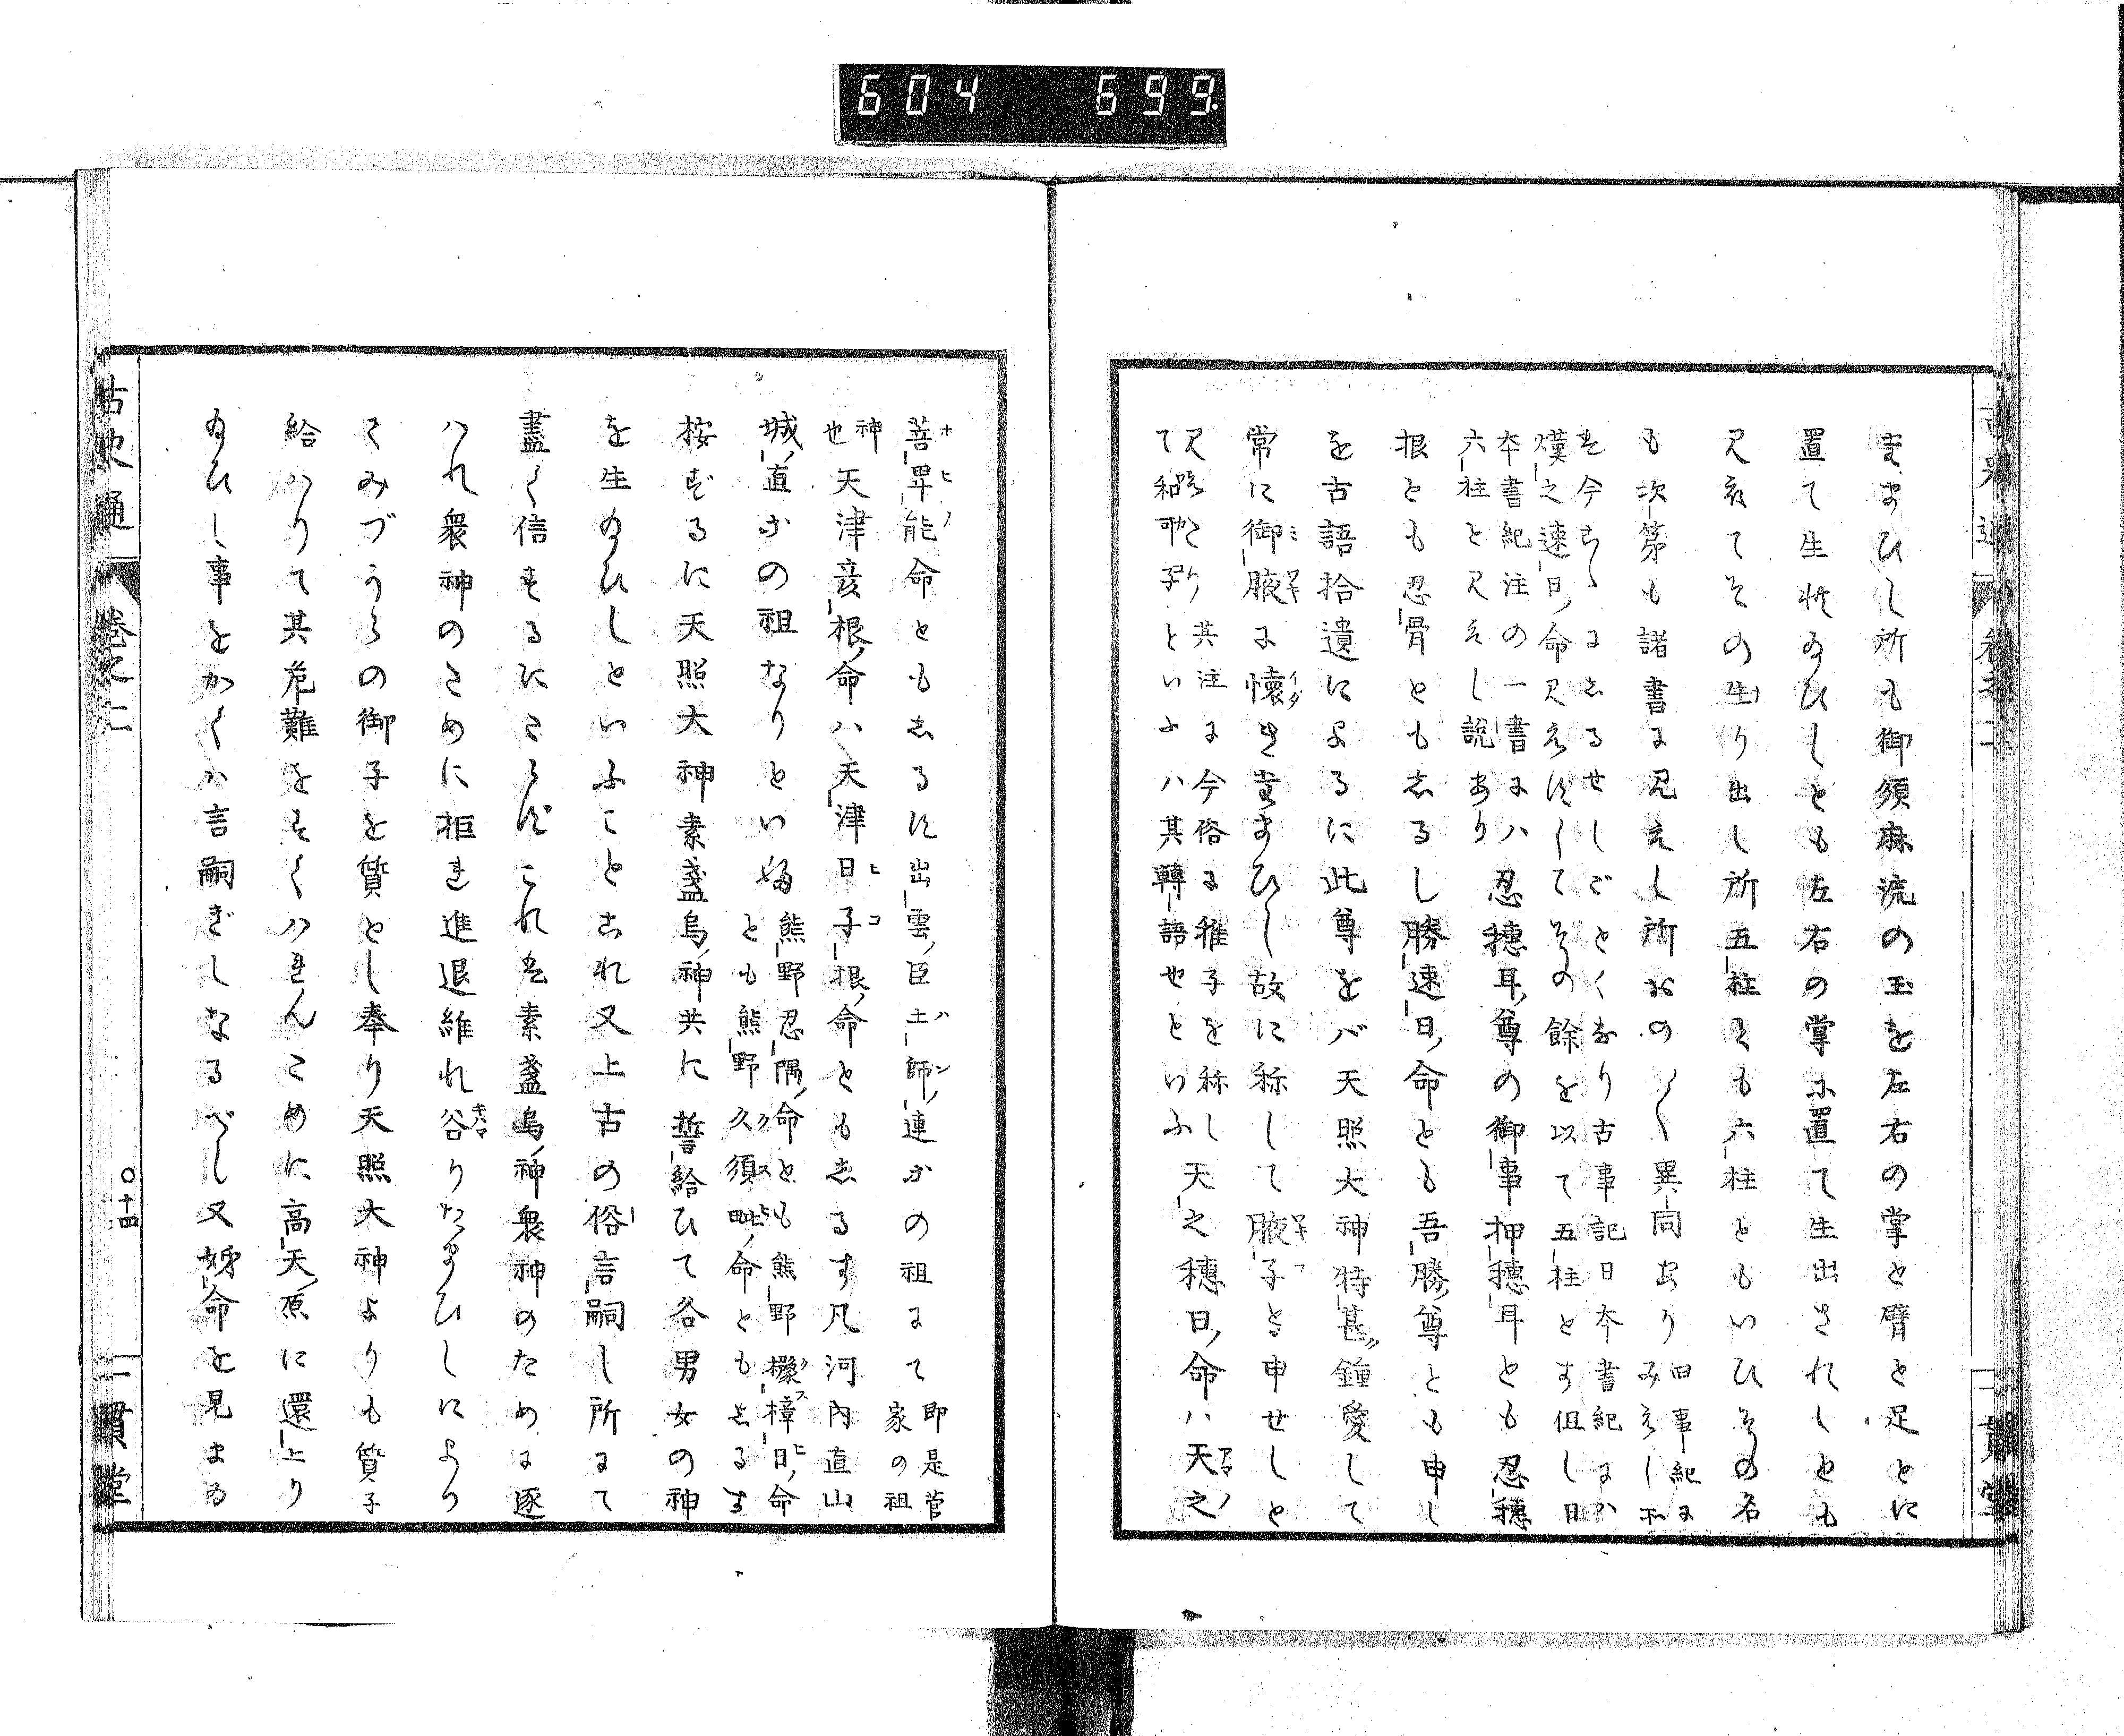 604 699
まひし所も御須麻流の玉を左右の掌と臂と足とに
置て生れ給ひしとも左右の掌に置て生出されしとも
又敢てその生り出し所五柱とも六柱ともいひその名
も次第も諸書に見えし所おのく異同あり
旧事紀に
みえし
今こゝにしるせしごとくなり古事記日本書紀にハ
熯之速日命見えずしてその餘を以て五柱とす但し日
本書紀注の一書にハ
六柱と見えし説あり
忍穂耳尊の御事押穂耳とも忍穂
根とも忍骨ともしるし勝速日命とも吾勝尊とも申し
を古語拾遺によるに此尊をバ天照大神特甚鍾愛して
常に御腋に懐きまひし故に称して腋子と申せしと
其注に今俗に稚子を称し
といふハ其轉語也といふ
天之穂日命ハ天之
菩卑能命ともしるす出雲臣土師連かの祖にて
即是菅
家の祖
神
也
天津彦根命ハ天津日子根命ともしるす凡河内直山
城直かの祖なりといふ
熊野忍隅命とも熊野櫲樟日命
とも熊野久須毗命ともしるす
按ずるに天照大神素盞烏神共に誓給ひて各男女の神
を生給ひしといふことこれ又上古の俗言嗣し所にて
盡く信するにたらずこれは素盞烏神衆神のために逐
ハれ衆神のために拒き進退維れ谷りたまひしにより
てみづからの御子を質とし奉り天照大神よりも質子
給ハりて其危難をすくハれんために高天原に還上り
給ひし事をかくハ言嗣ぎしなるべし又姊命を見まゐ
古史通 巻之二
〇十四
一貫堂